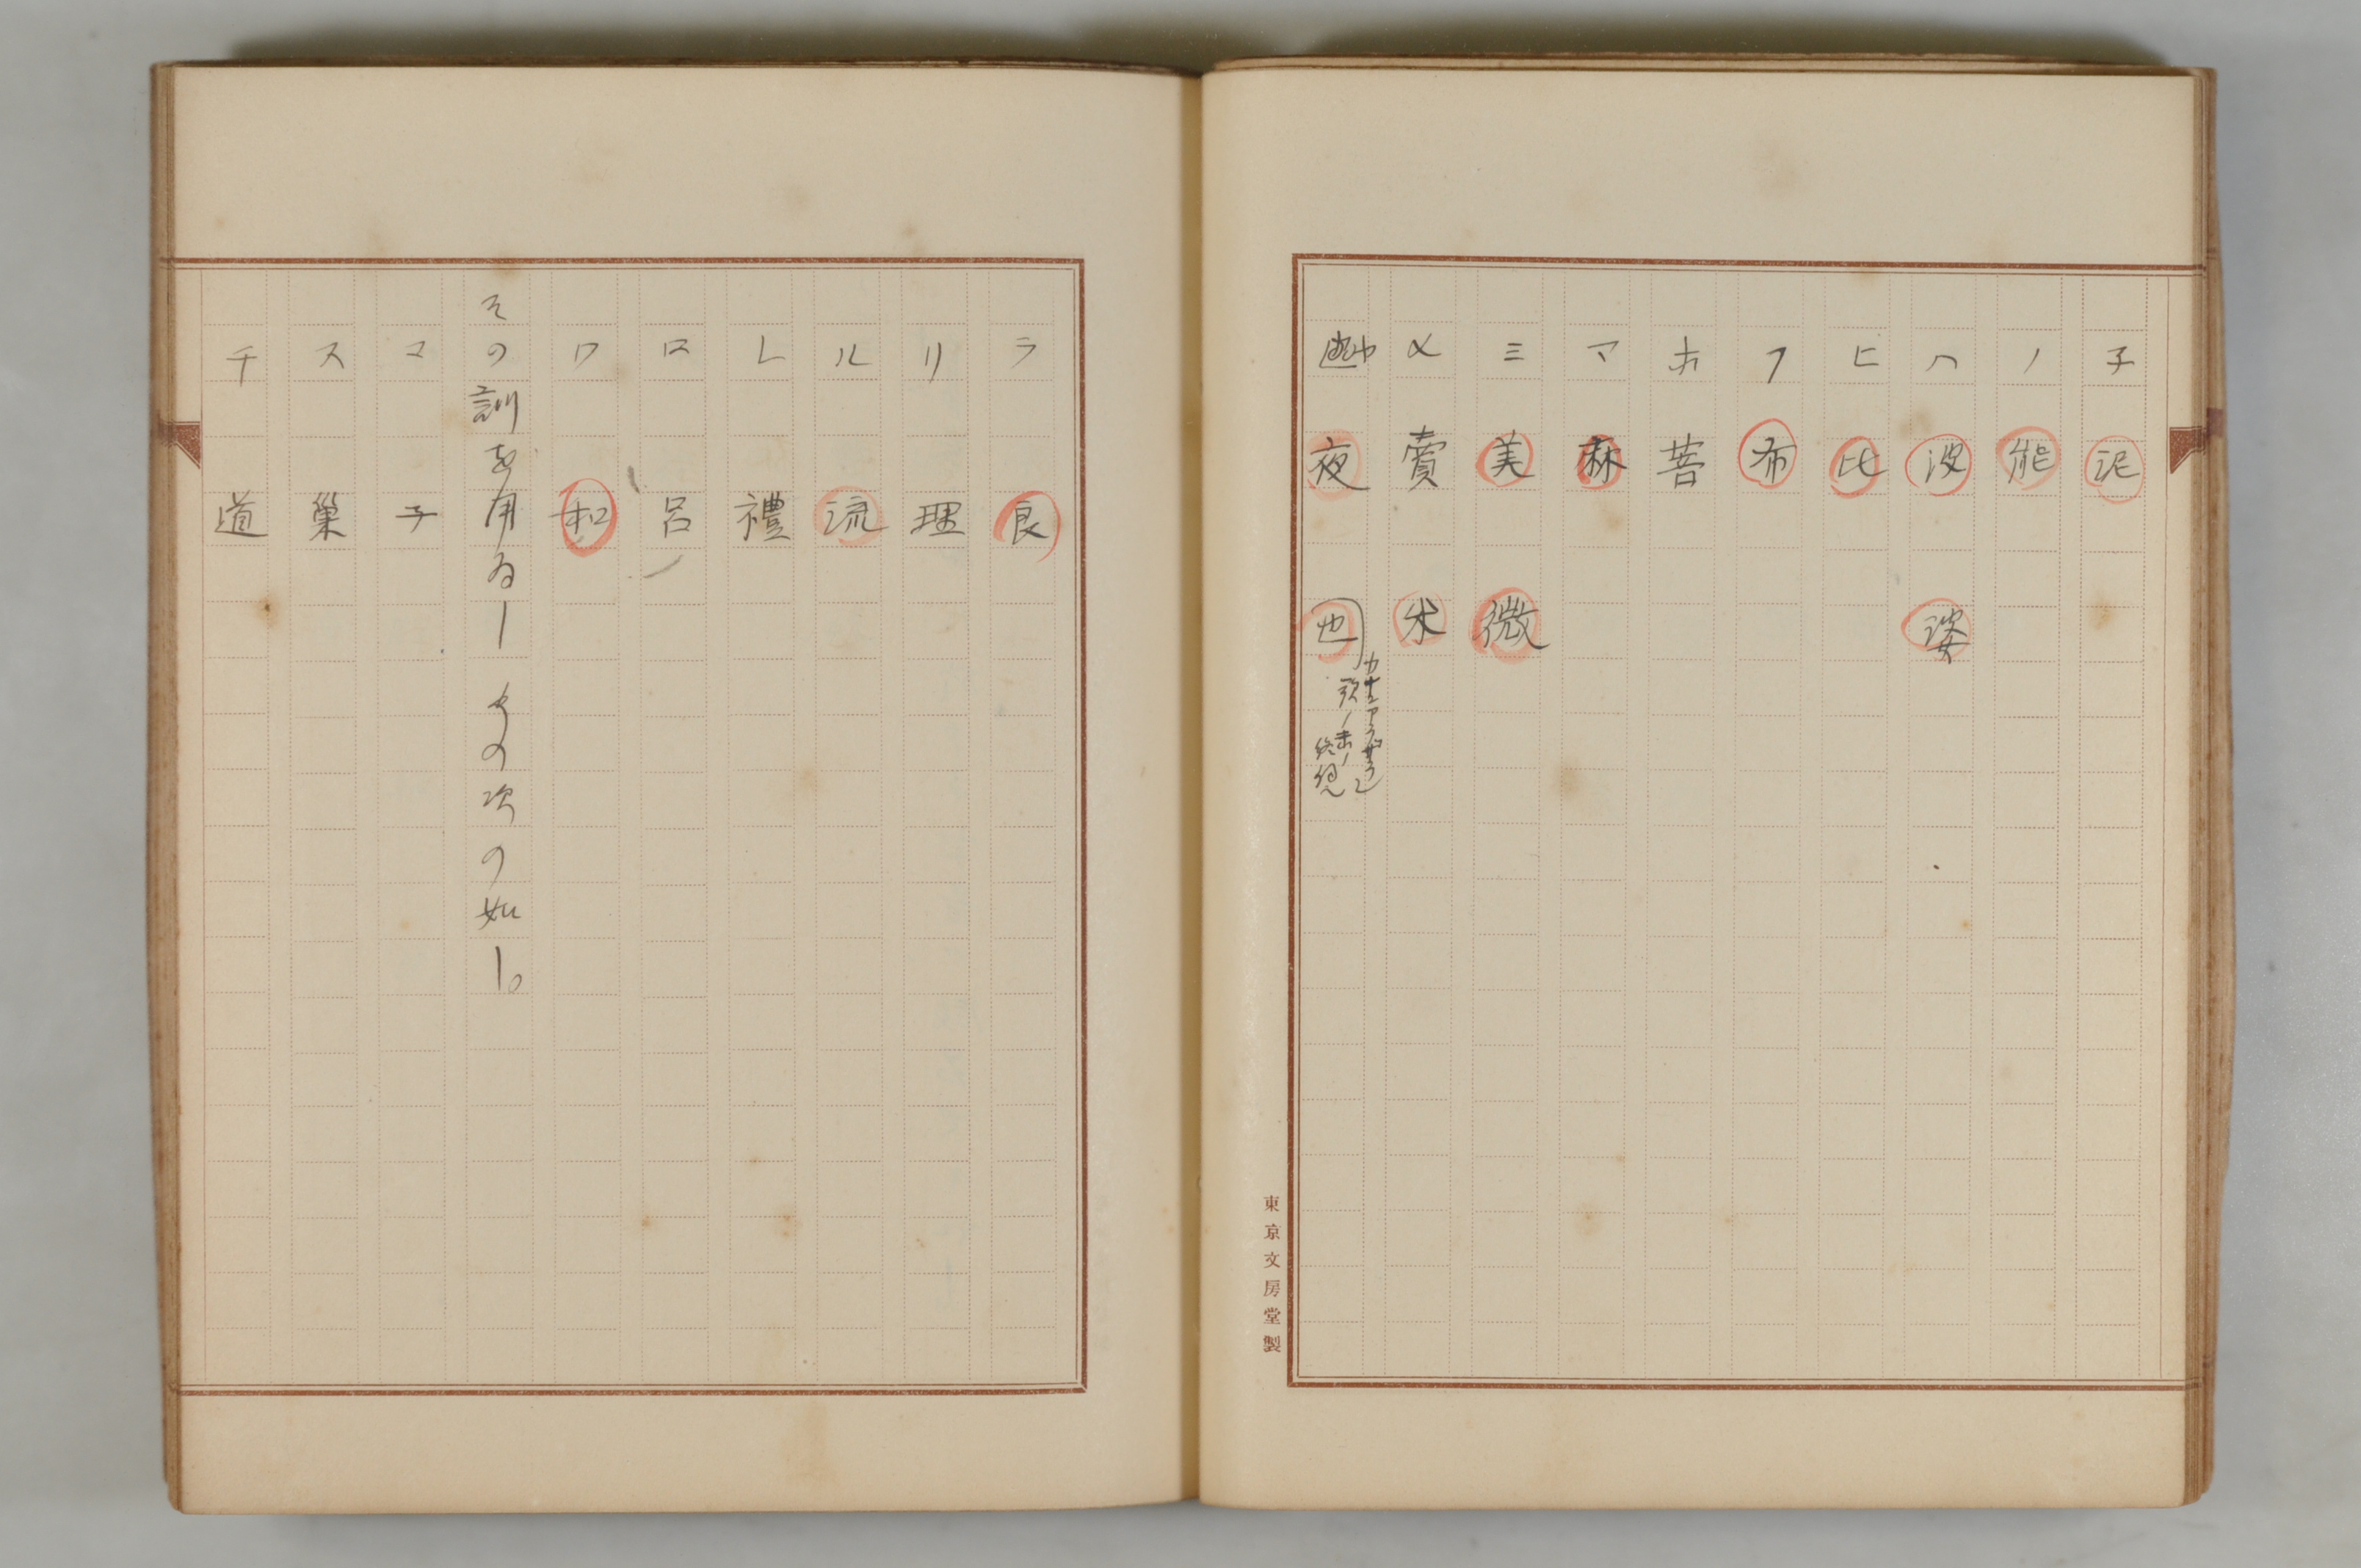 子 泥
ノ 能
ハ 波 婆
ヒ 比
フ 布
ホ 菩
マ 麻
ミ 美 微
メ 賣 米
ヤ 夜 也
東京文房堂製
ラ 良
リ 理
ル 流
レ 禮
ロ 呂
ワ 和
その訓を用ゐし その次の如し。
コ 子
ス 巣
チ 道